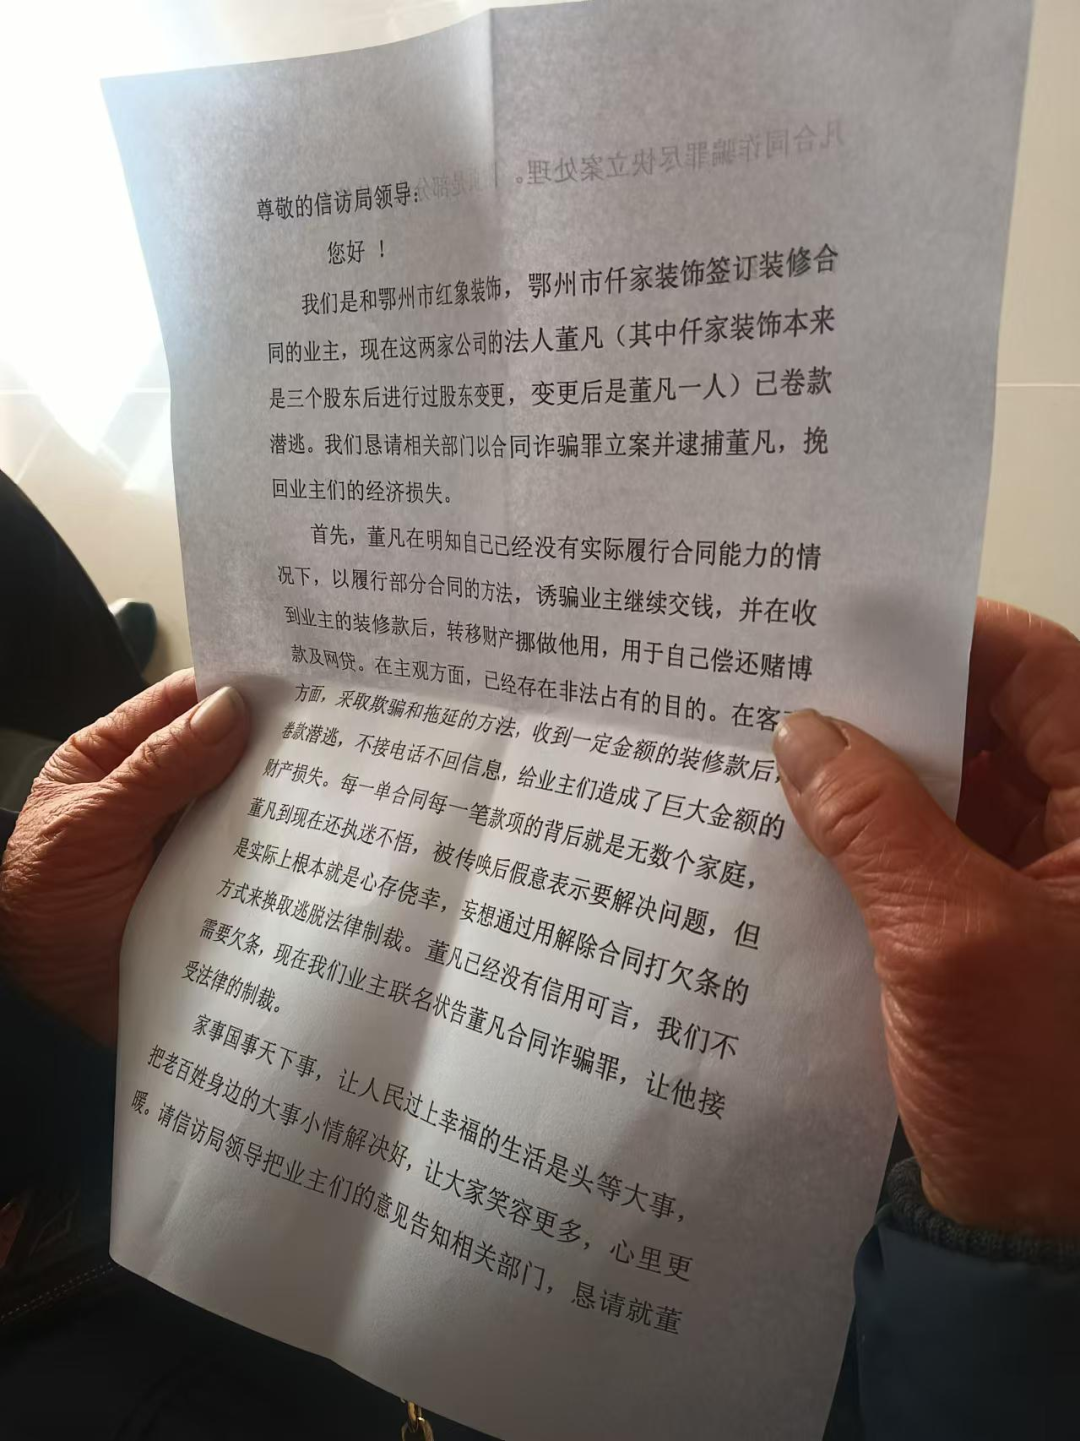 凡合同诈骗罪尽快立案处理。
尊敬的信访局领导：
您好！
我们是和鄂州市红象装饰，鄂州市仟家装饰签订装修合
同的业主，现在这两家公司的法人董凡（其中仟家装饰本来
是三个股东后进行过股东变更，变更后是董凡一人）已卷款
潜逃。我们恳请相关部门以合同诈骗罪立案并逮捕董凡，挽
回业主们的经济损失。
首先，董凡在明知自己已经没有实际履行合同能力的情
况下，以履行部分合同的方法，诱骗业主继续交钱，并在收
到业主的装修款后，转移财产挪做他用，用于自己偿还赌博
款及网贷。在主观方面，已经存在非法占有的目的。在客
方面，采取欺骗和拖延的方法，收到一定金额的装修款后，
卷款潜逃，不接电话不回信息，给业主们造成了巨大金额的
财产损失。每一单合同每一笔款项的背后就是无数个家庭，
董凡到现在还执迷不悟，被传唤后假意表示要解决问题，但
是实际上根本就是心存侥幸，妄想通过用解除合同打欠条的
方式来换取逃脱法律制裁。董凡已经没有信用可言，我们不
需要欠条，现在我们业主联名状告董凡合同诈骗罪，让他接
受法律的制裁。
家事国事天下事，让人民过上幸福的生活是头等大事，
把老百姓身边的大事小情解决好，让大家笑容更多，心里更
暖。请信访局领导把业主们的意见告知相关部门，恳请就董